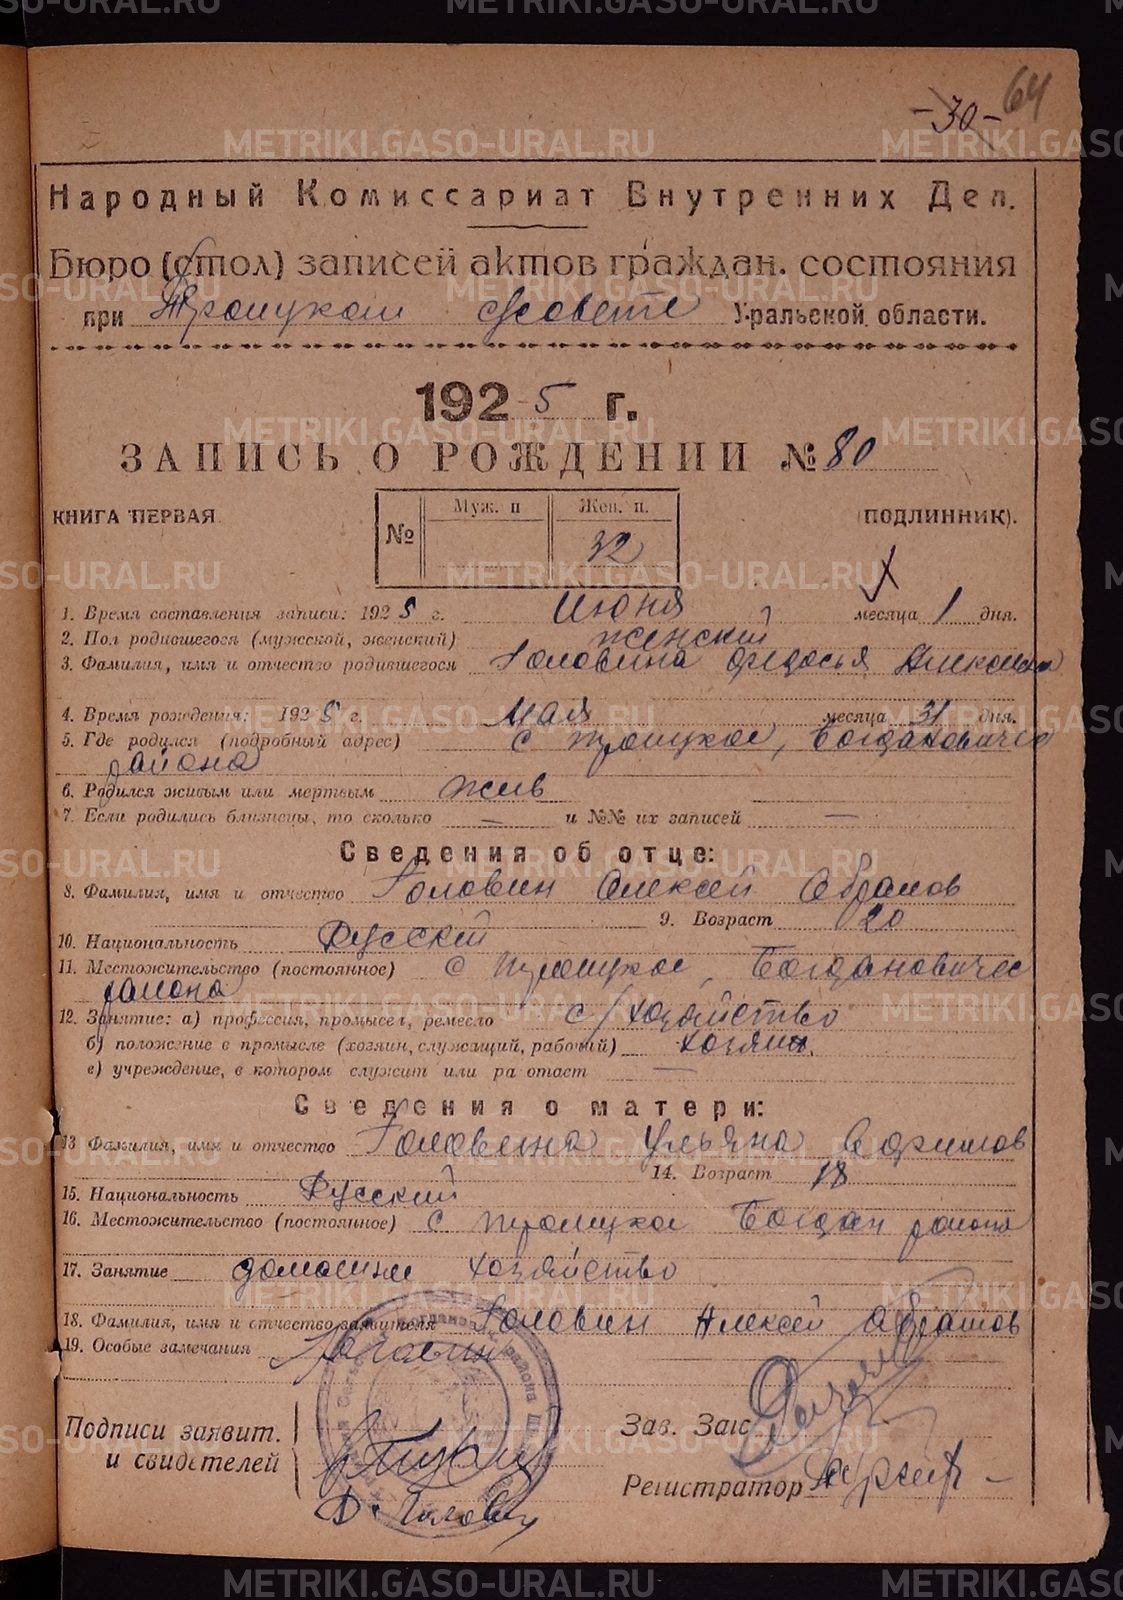 -30- 64
Народный Комиссариат Внутренних Дел.
Бюро (стол) записей актов граждан. состояния
при Троицком с/совете Уральской области.
1925 г.
ЗАПИСЬ О РОЖДЕНИИ № 80
КНИГА ПЕРВАЯ (ПОДЛИННИК).
№ Муж. п Жен. п.
32
1. Время составления записи: 1925 г. Июня месяца 1 дня.
2. Пол родившегося (мужской, женский) женский
3. Фамилия, имя и отчество родившегося Головина Федосья Алексеевн
4. Время рождения: 1925 г. Мая месяца 31 дня.
5. Где родился (подробный адрес) с Троицкое, Богдановичско
района
6. Родился живым или мертвым жив
7. Если родились близнецы, то сколько — и №№ их записей —
Сведения об отце:
8. Фамилия, имя и отчество Головин Алексей Абрамов
9. Возраст 20
10. Национальность Русский
11. Местожительство (постоянное) с Троицкое, Богдановичес
района
12. Занятие: а) профессия, промысел, ремесло с/хозяйство
б) положение в промысле (хозяин, служащий, рабочий) хозяин.
в) учреждение, в котором служит или работает —
Сведения о матери:
13 Фамилия, имя и отчество Головина Ульяна Ефимов
14. Возраст 18
15. Национальность Русский
16. Местожительство (постоянное) с Троицкое Богдан района
17. Занятие домашнее хозяйство
18. Фамилия, имя и отчество заявителя Головин Алексей Абрамов
19. Особые замечания Головин
Подписи заявит. Зав. Загс
и свидетелей Регистратор
METRIKI.GASO-URAL.RU